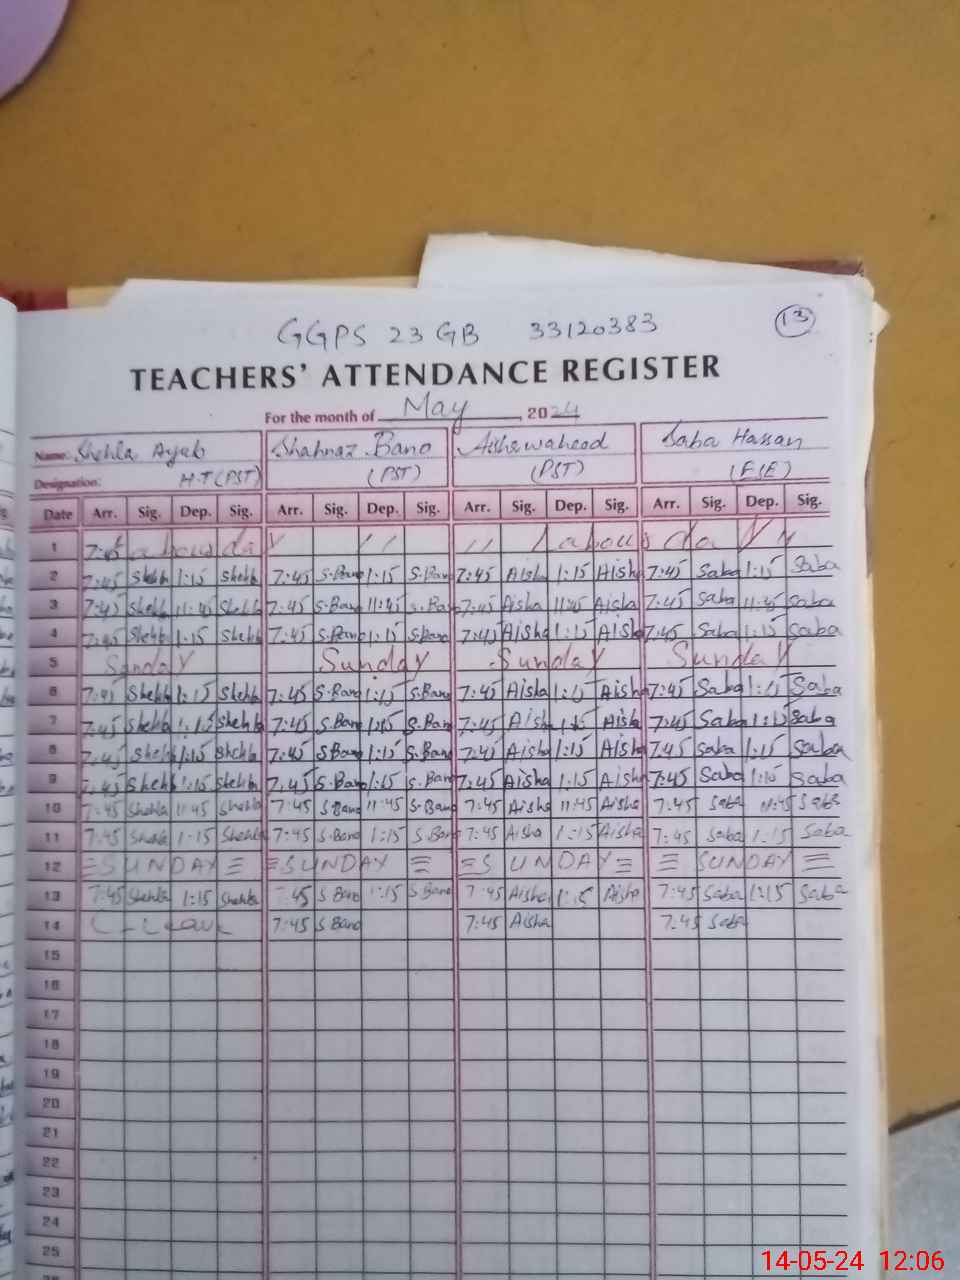 GGPS 23 GB 33120383 13
TEACHERS' ATTENDANCE REGISTER
For the month of May, 2024
Name: Shehla Ayub Shahnaz Bano Aisha waheed Saba Hassan
Designation: H.T (PST) (PST) (PST)
Date Arr. Sig. Dep. Sig. Arr. Sig. Dep. Sig. Arr. Sig. Dep. Sig. Arr. Sig. Dep. Sig.
1 Labour day
2 7:45 Shehla 1:15 Shehla 7:45 S.Bano 1:15 S.Bano 7:45 Aisha 1:15 Aisha 7:45 Saba 1:15 Saba
3 7:45 Shehla 11:45 Shehla 7:45 S.Bano 11:45 S.Bano 7:45 Aisha 11:45 Aisha 7:45 Saba 11:45 Saba
4 7:45 Shehla 1:15 Shehla 7:45 S.Bano 1:15 S.Bano 7:45 Aisha 1:15 Aisha 7:45 Saba 1:15 Saba
5 Sunday Sunday Sunday Sunday
6 7:45 Shehla 1:15 Shehla 7:45 S.Bano 1:15 S.Bano 7:45 Aisha 1:15 Aisha 7:45 Saba 1:15 Saba
7 7:45 Shehla 1:15 Shehla 7:45 S.Bano 1:15 S.Bano 7:45 Aisha 1:15 Aisha 7:45 Saba 1:15 Saba
8 7:45 Shehla 1:15 Shehla 7:45 S.Bano 1:15 S.Bano 7:45 Aisha 1:15 Aisha 7:45 Saba 1:15 Saba
9 7:45 Shehla 1:15 Shehla 7:45 S.Bano 1:15 S.Bano 7:45 Aisha 1:15 Aisha 7:45 Saba 1:15 Saba
10 7:45 Shehla 11:45 Shehla 7:45 S.Bano 11:45 S.Bano 7:45 Aisha 11:45 Aisha 7:45 Saba 11:45 Saba
11 7:45 Shehla 1:15 Shehla 7:45 S.Bano 1:15 S.Bano 7:45 Aisha 1:15 Aisha 7:45 Saba 1:15 Saba
12 SUNDAY SUNDAY SUNDAY SUNDAY
13 7:45 Shehla 1:15 Shehla 7:45 S Bano 1:15 S Bano 7:45 Aisha 1:15 Aisha 7:45 Saba 1:15 Saba
14 C-Leave 7:45 S Bano 7:45 Aisha 7:45 Saba
15
16
17
18
19
20
21
22
23
24
25
14-05-24 12:06